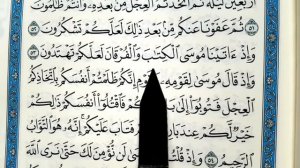 أَرْبَعِينَ لَيْلَةً ثُمَّ ٱتَّخَذْتُمُ ٱلْعِجْلَ مِنۢ بَعْدِهِۦ وَأَنتُمْ ظَٰلِمُونَ ٥١
ثُمَّ عَفَوْنَا عَنكُم مِّنۢ بَعْدِ ذَٰلِكَ لَعَلَّكُمْ تَشْكُرُونَ ٥٢
وَإِذْ ءَاتَيْنَا مُوسَى ٱلْكِتَٰبَ وَٱلْفُرْقَانَ لَعَلَّكُمْ تَهْتَدُونَ ٥٣
وَإِذْ قَالَ مُوسَىٰ لِقَوْمِهِۦ إِنَّكُمْ ظَلَمْتُمْ أَنفُسَكُم بِٱتِّخَاذِكُمُ
ٱلْعِجْلَ فَتُوبُوٓا۟ إِلَىٰ فَٱقْتُلُوٓا۟ أَنفُسَكُمْ ذَٰلِكُمْ
خَيْرٌ لَّكُمْ عِندَ فَتَابَ عَلَيْكُمْ إِنَّهُۥ هُوَ ٱلتَّوَّابُ
ٱلرَّحِيمُ ٥٤ وَإِذْ قُلْتُمْ لَن نُّؤْمِنَ لَكَ حَتَّىٰ نَرَى ٱللَّهَ